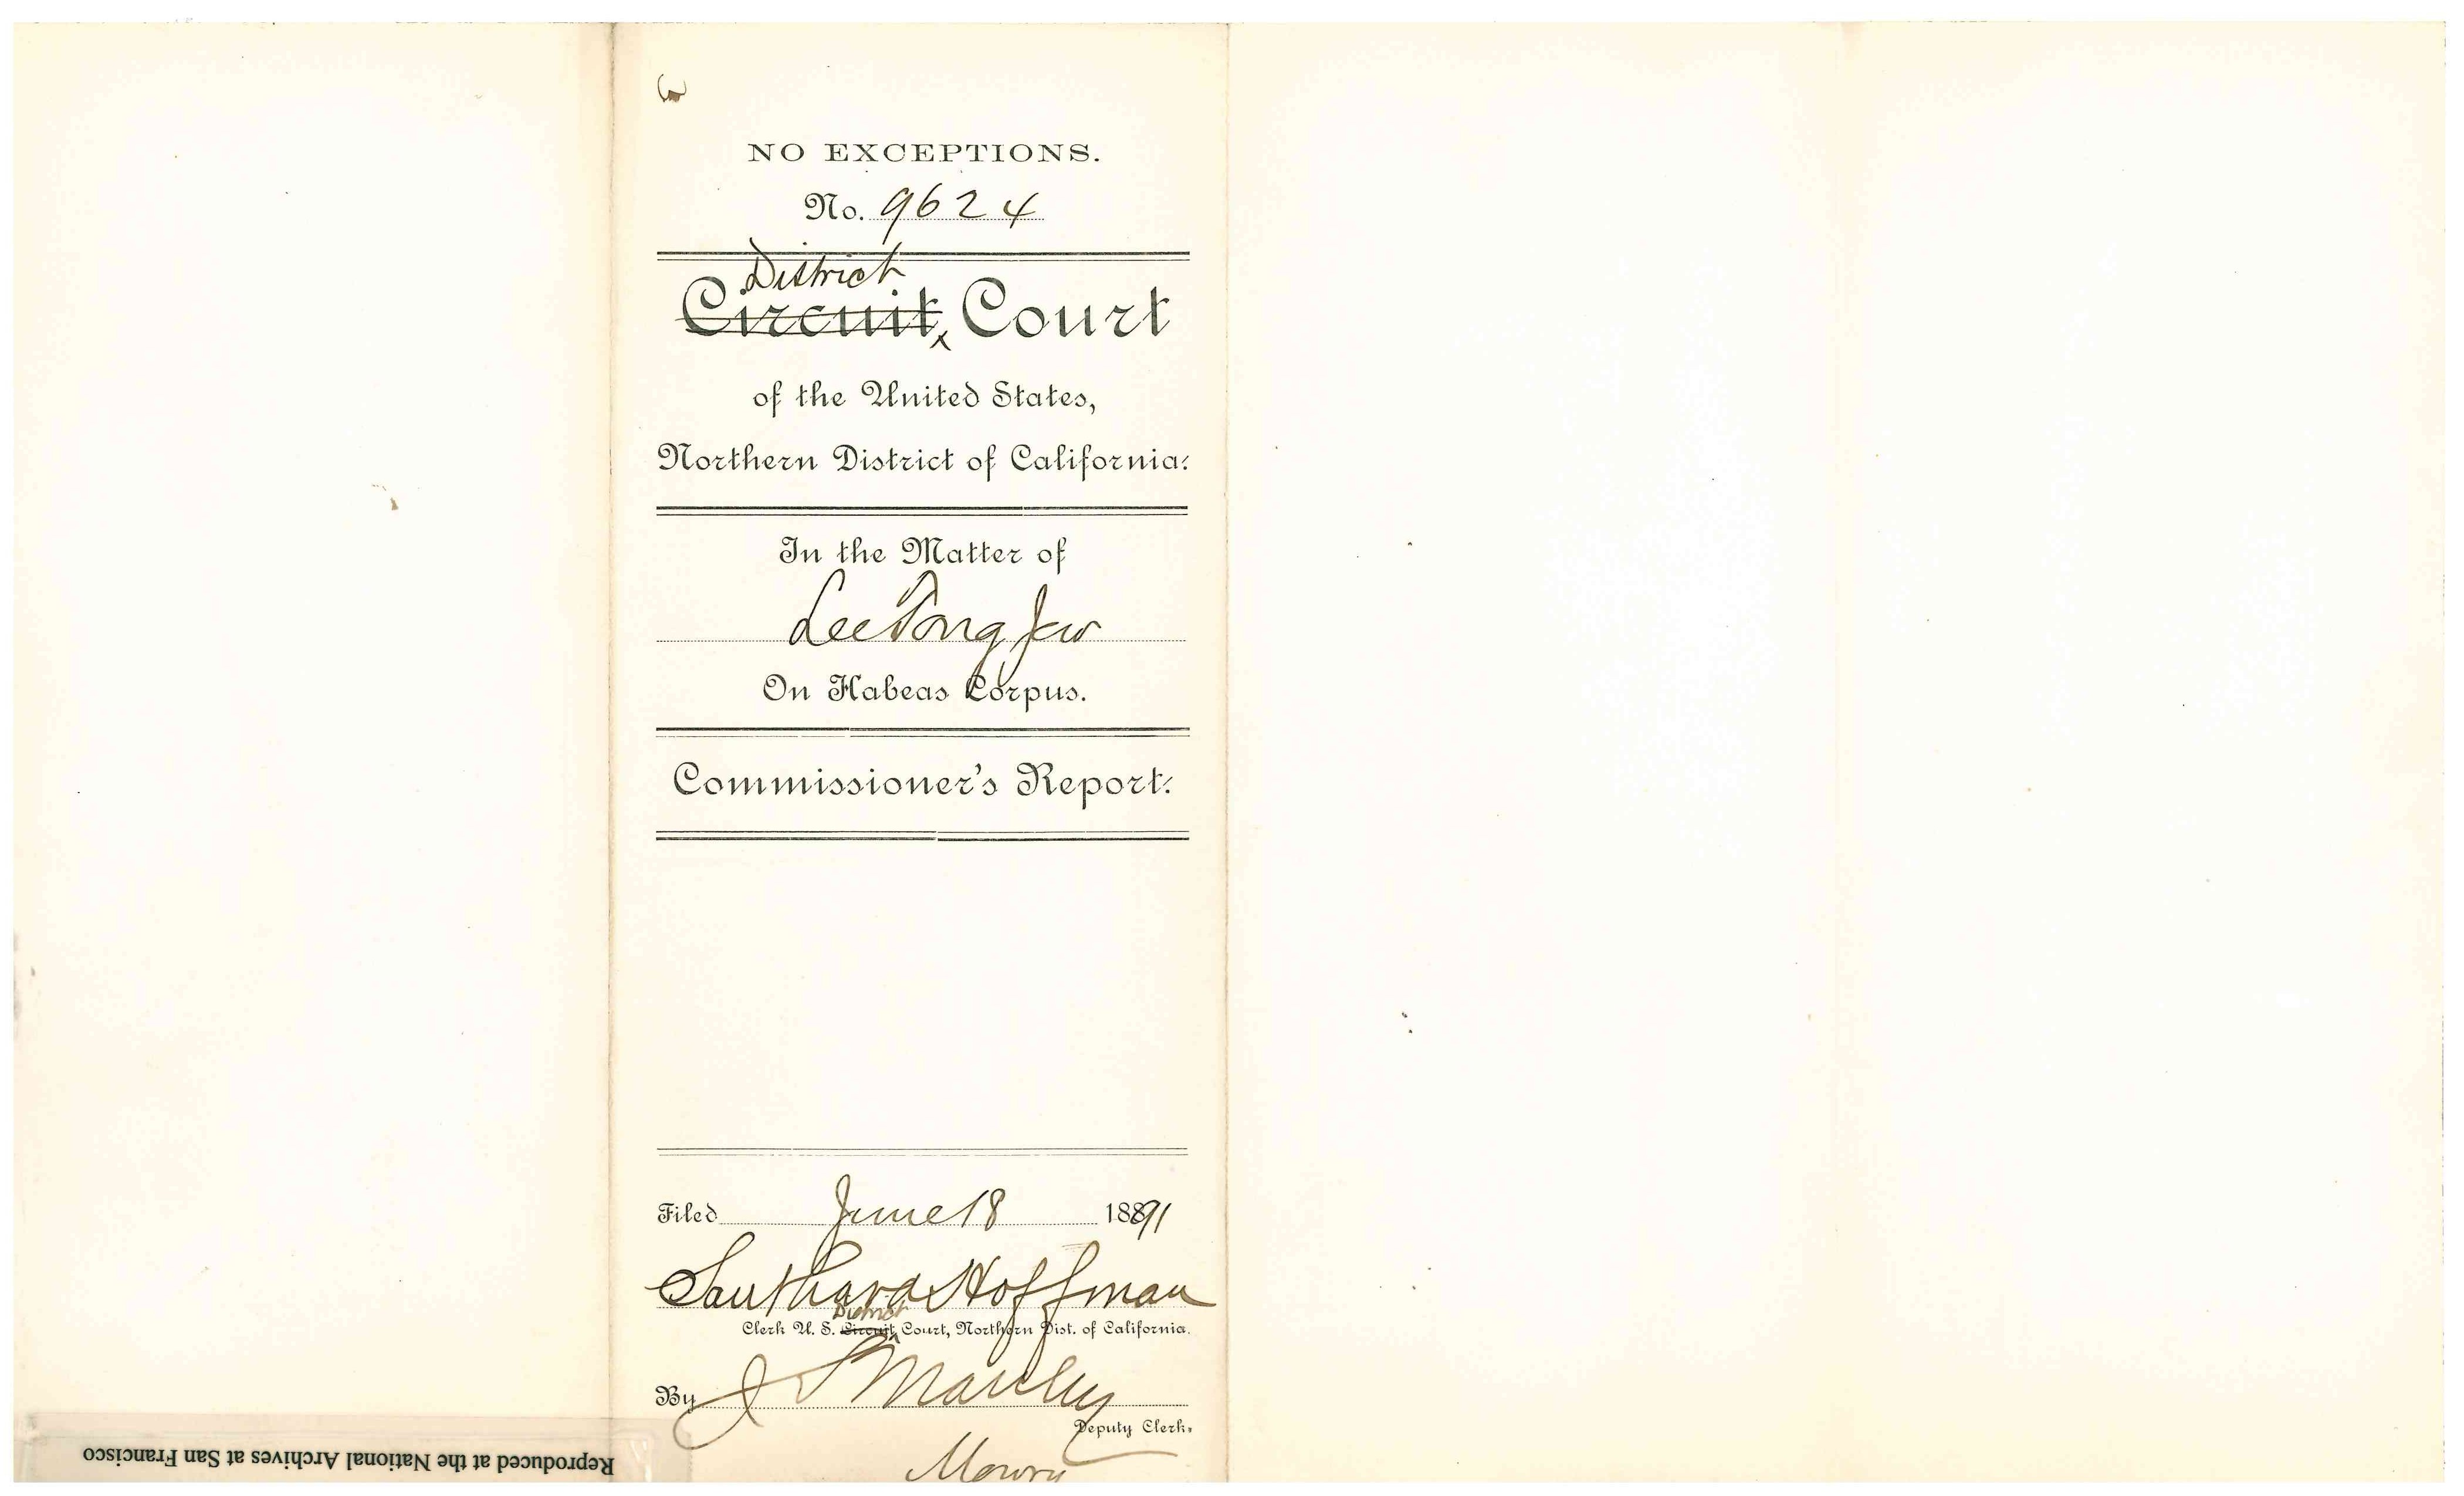 NO EXCEPTIONS.
No. 9624
District
Circuit Court
of the United States,
Northern District of California.
In the Matter of
Lee Tong Jew
On Habeas Corpus.
Commissioner's Report.
Filed June 18 1891
Southard Hoffman
District
Clerk U. S. Circuit Court, Northern Dist. of California.
By J S Manley
Deputy Clerk.
Mowry
Reproduced at the National Archives at San Francisco